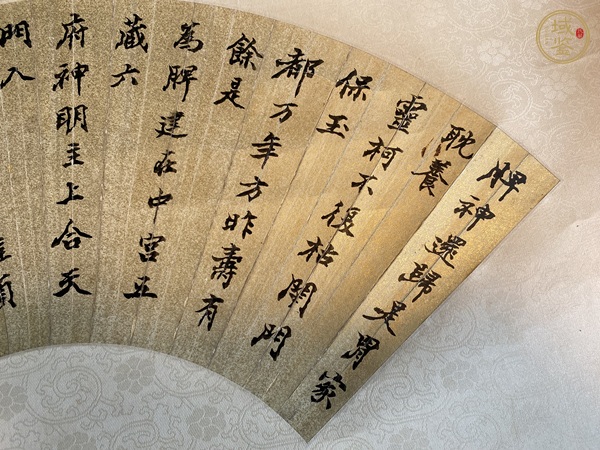 脾神還歸是胃家
耽養
靈柯不復枯閉門
保玉
都万年方昨壽有
餘是
為脾建在中宮五
藏六
府神明主上合天
門入
域鉴